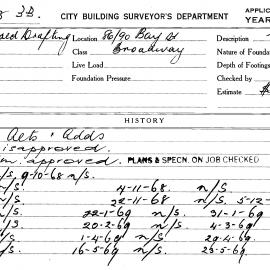 3D. CITY BUILDING SURVEYOR'S DEPARTMENT APPLIC
YEAR
Drafting Location 86/90 Bay St Description
Class Broadway Nature of Foundat
Live Load Depth of Footings
Foundation Pressure Checked by
Estimate $
HISTORY
Alts & Adds
isapproved.
approved. PLANS & SPECN. ON JOB CHECKED
/S. 9-10-68 n/S.
/S. 4-11-68. n/S
/S. 22-11-68 n/S. 5-12-
/S. 22-1-69 n/S. 31-1-69
/S. 20-2-69 n/S. 4-3-69
/S. 1-4-69 n/S. 29-4-69.
/S. 16-5-69 n/S. 23-5-69.